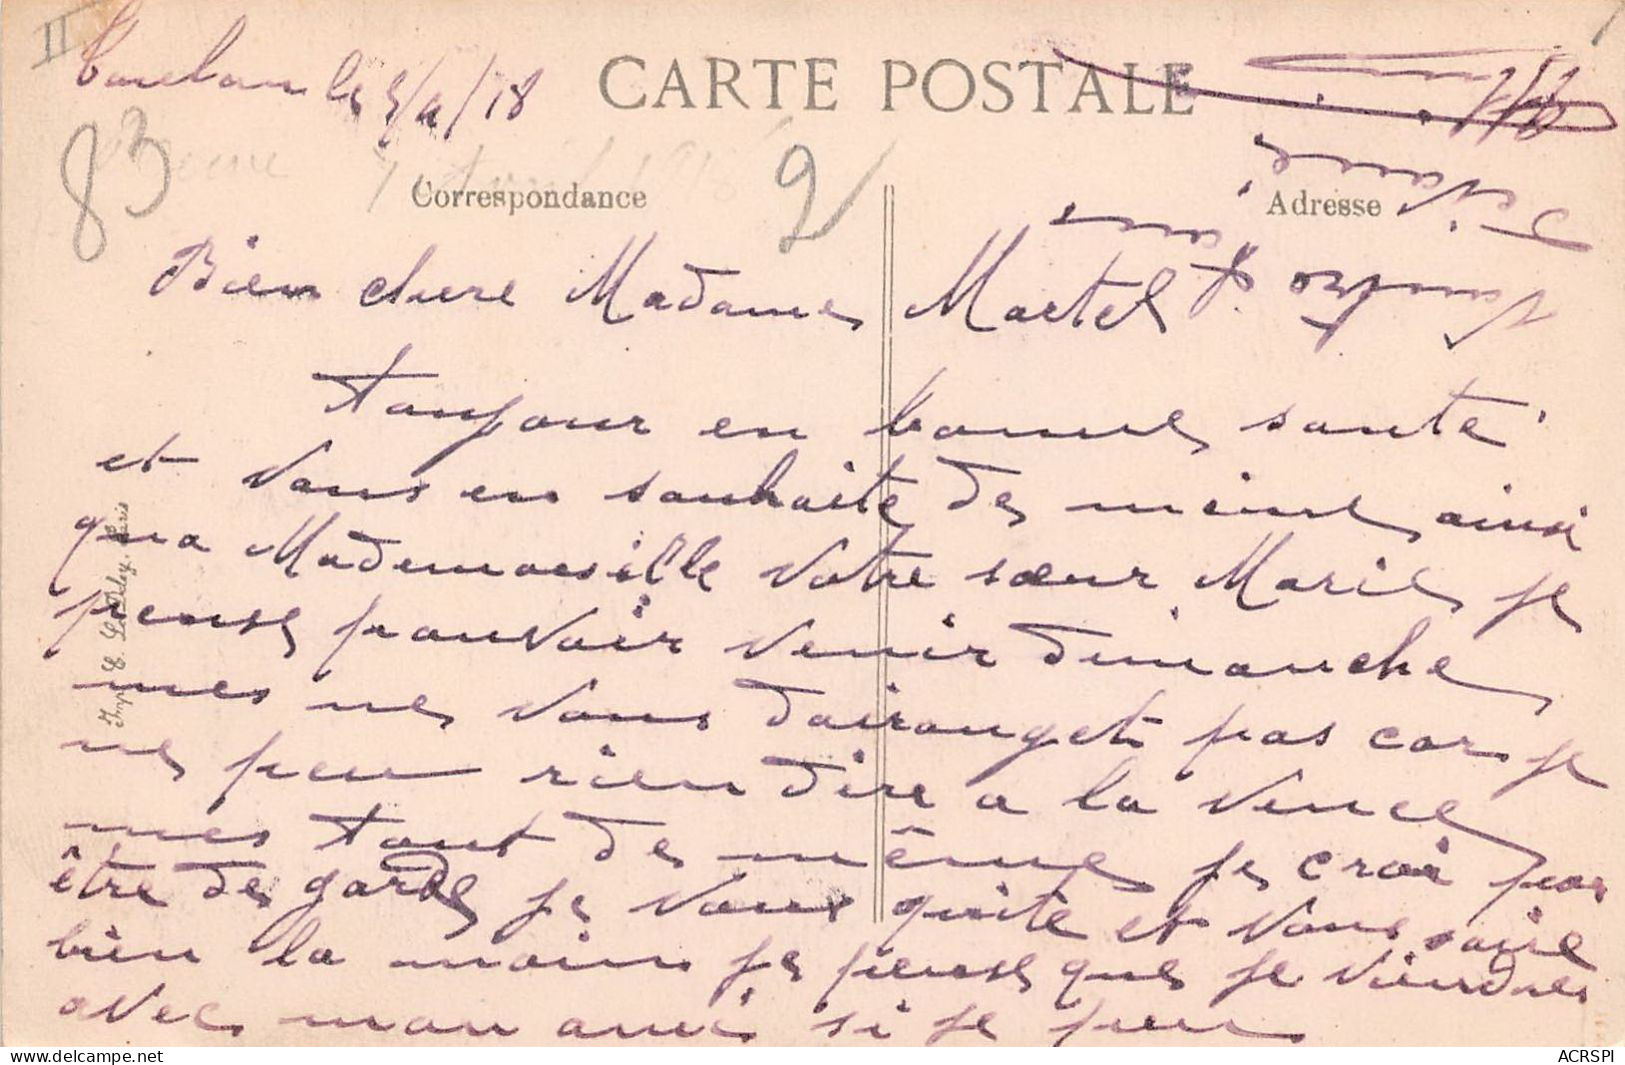 II
Toulon le 5/4/18
CARTE POSTALE
83
2
Correspondance
Adresse
Bien chere Madame Martel
toujour en bonne santé
et vous en souhaite de meme ainsi
qua Mademoiselle votre sœur Marie je
pense pouvoir venir dimanche
mes ne vous dairanget pas car je
ne peu rien dire a la vence
mes tout de même je croi pas
être de garde je vous quite et vous saire
bien la main je pense que je viendres
avec mon ami si je peu
Imp. E. Le Deley. Paris
ACRSPI